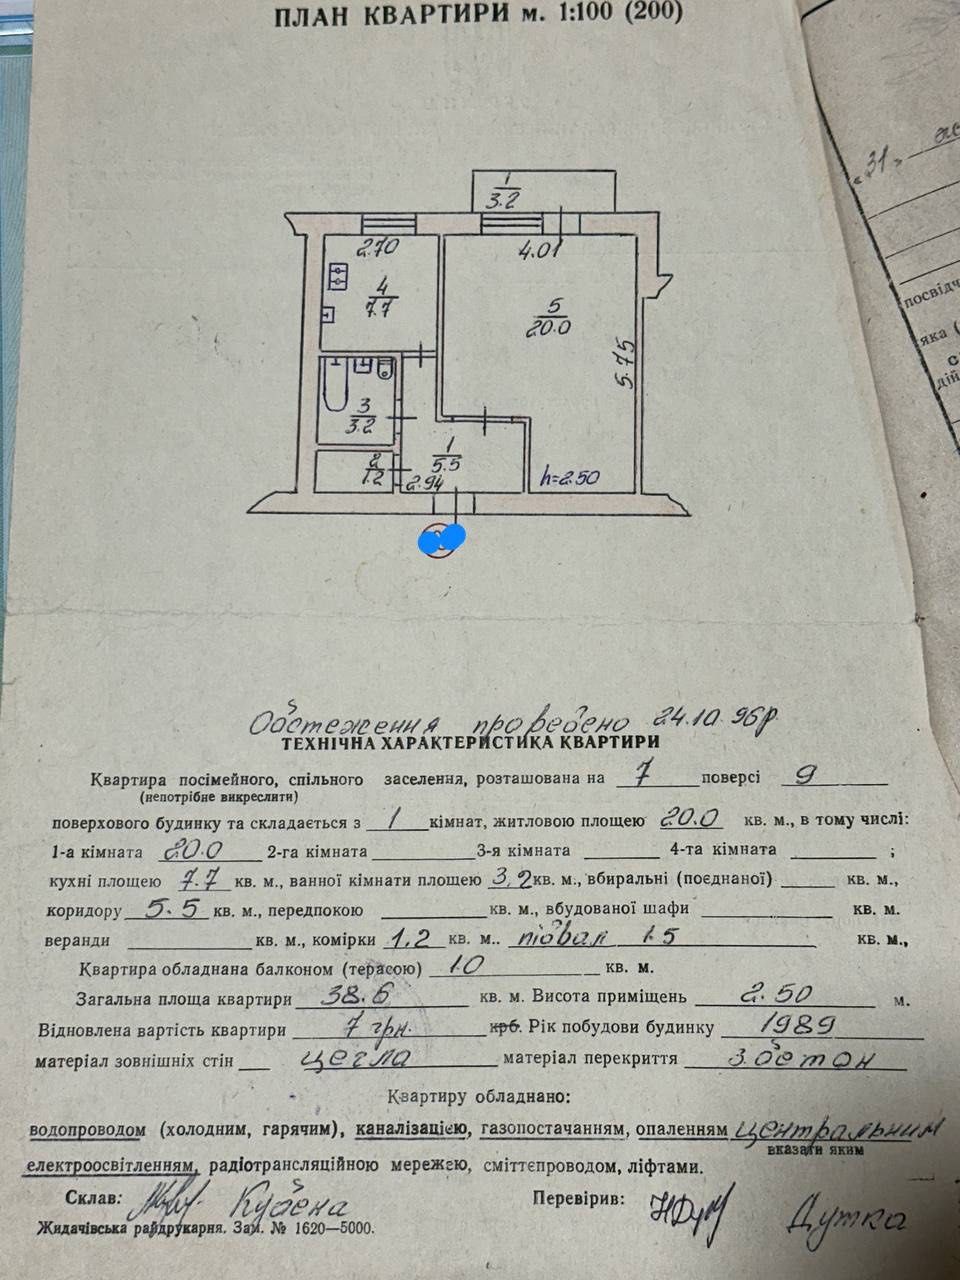 ПЛАН КВАРТИРИ м. 1:100 (200)
"31"
1
3.2
2.70
4.01
4
7.7
5
20.0
5.75
3
3.2
1
5.5
2
1.2
2.94
h=2.50
посвідч
яка (
с
дій
Обстеження проведено 24.10.96р.
ТЕХНІЧНА ХАРАКТЕРИСТИКА КВАРТИРИ
Квартира посімейного, спільного заселення, розташована на 7 поверсі 9
(непотрібне викреслити)
поверхового будинку та складається з 1 кімнат, житловою площею 20.0 кв. м., в тому числі:
1-а кімната 20.0 2-га кімната 3-я кімната 4-та кімната ;
кухні площею 7.7 кв. м., ванної кімнати площею 3,2 кв. м., вбиральні (поєднаної) кв. м.,
коридору 5.5 кв. м., передпокою кв. м., вбудованої шафи кв. м.
веранди кв. м., комірки 1.2 кв. м.. підвал 1.5 кв. м.,
Квартира обладнана балконом (терасою) 1.0 кв. м.
Загальна площа квартири 38.6 кв. м. Висота приміщень 2.50 м.
Відновлена вартість квартири 7 грн. крб. Рік побудови будинку 1989
матеріал зовнішніх стін цегла матеріал перекриття з.бетон
Квартиру обладнано:
водопроводом (холодним, гарячим), каналізацією, газопостачанням, опаленням центральним
вказати яким
електроосвітленням, радіотрансляційною мережею, сміттєпроводом, ліфтами.
Склав: Кубена Перевірив: Дутка
Жидачівська райдрукарня. Зам. № 1620—5000.